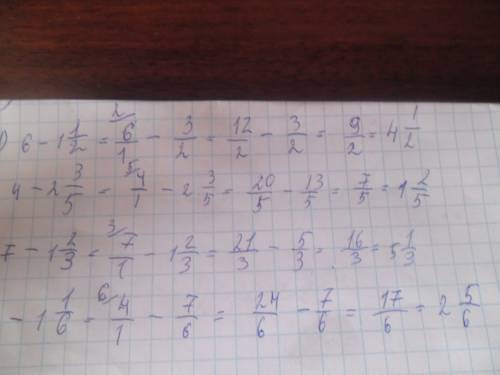 ) 6 - 1 1/2 = 2/ 6/1 - 3/2 = 12/2 - 3/2 = 9/2 = 4 1/2
4 - 2 3/5 = 5/ 4/1 - 2 3/5 = 20/5 - 13/5 = 7/5 = 1 2/5
7 - 1 2/3 = 3/ 7/1 - 1 2/3 = 21/3 - 5/3 = 16/3 = 5 1/3
- 1 1/6 = 6/ 4/1 - 7/6 = 24/6 - 7/6 = 17/6 = 2 5/6